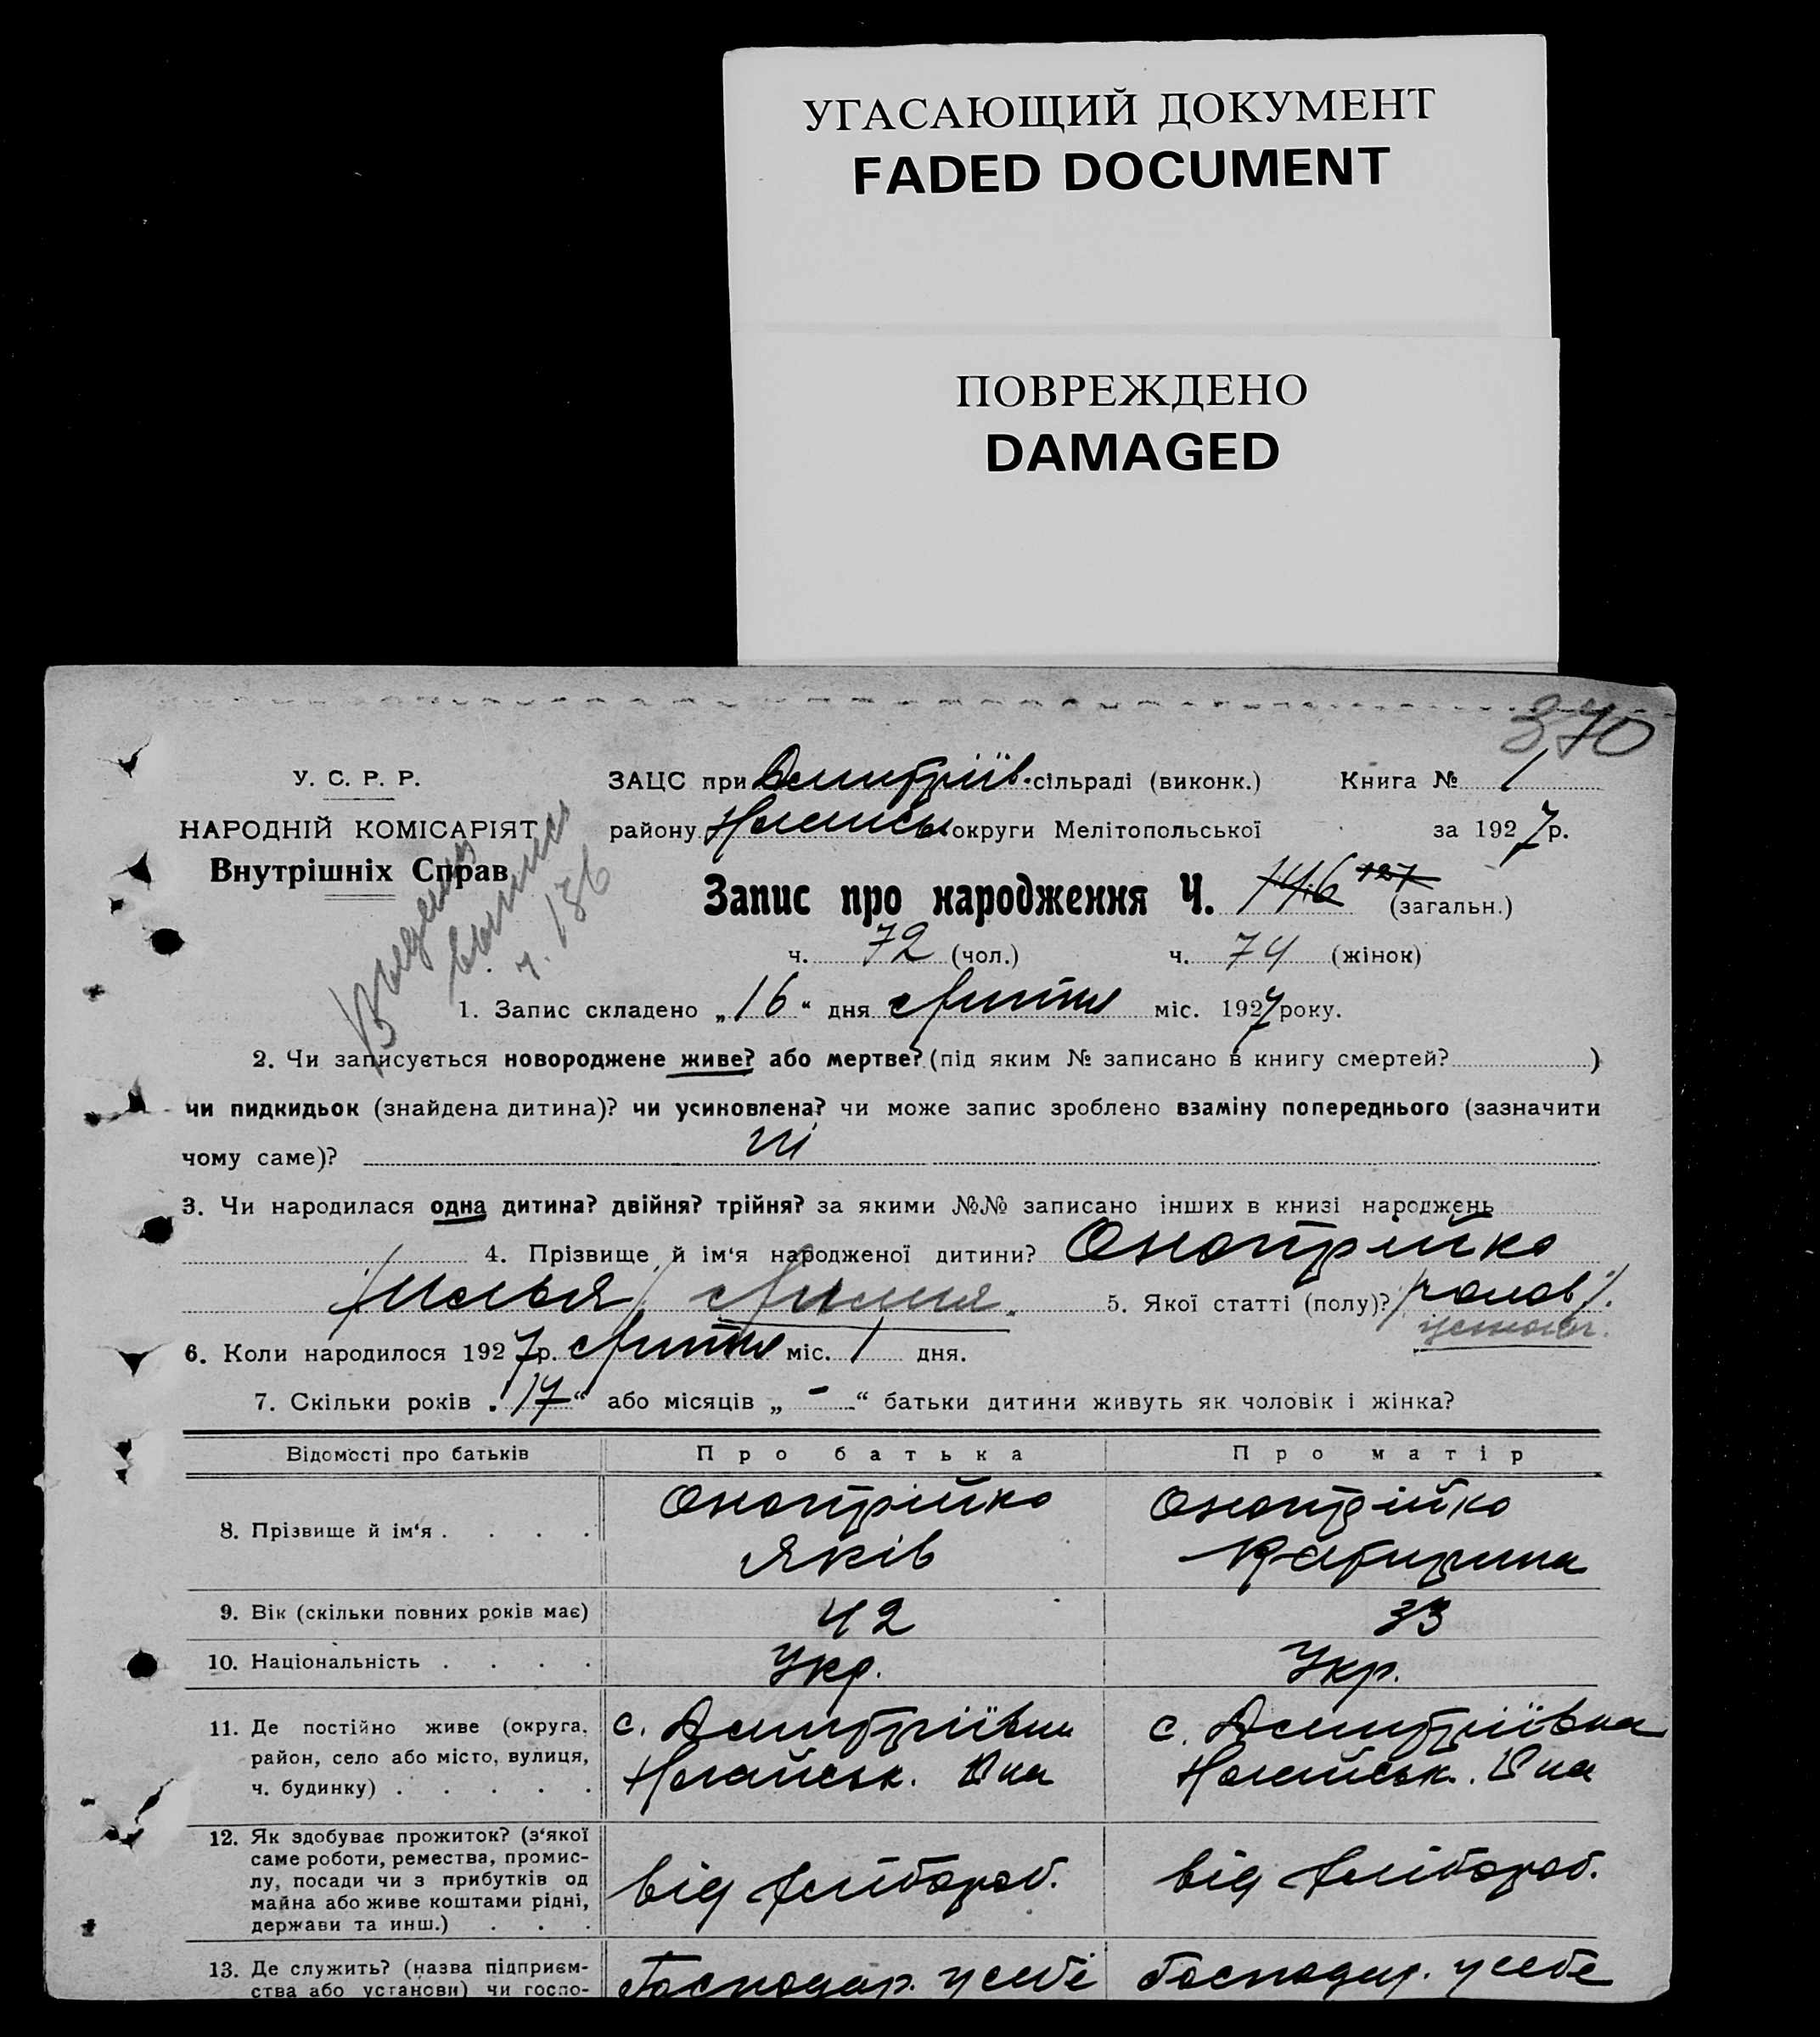 УГАСАЮЩИЙ ДОКУМЕНТ
FADED DOCUMENT
ПОВРЕЖДЕНО
DAMAGED
370
У. С. Р. Р.
НАРОДНІЙ КОМІСАРІЯТ
Внутрішніх Справ
ч. 186
ЗАЦС при Дмитріїв. сільраді (виконк.) Книга № 1
району округи Мелітопольської за 1927 р.
Запис про народження Ч. 146 127 (загальн.)
ч. 72 (чол.) ч. 74 (жінок)
1. Запис складено „16“ дня Липня міс. 1927 року.
2. Чи записується новороджене живе? або мертве? (під яким № записано в книгу смертей? )
чи пидкидьок (знайдена дитина)? чи усиновлена? чи може запис зроблено взаміну попереднього (зазначити
чому саме)? ні
3. Чи народилася одна дитина? двійня? трійня? за якими №№ записано інших в книзі народжень
4. Прізвище й ім‘я народженої дитини? Онопрійко
5. Якої статті (полу)? /чолов/.
6. Коли народилося 1927 р. Липня міс. 1 дня.
7. Скільки років „17“ або місяців „ - “ батьки дитини живуть як чоловік і жінка?
Відомості про батьків Про батька Про матір
8. Прізвище й ім‘я . . . . Онопрійко Онопрійко
Яків Катирина
9. Вік (скільки повних років має) 42 33
10. Національність . . . . Укр. Укр.
11. Де постійно живе (округа, район, село або місто, вулиця, ч. будинку) . . . . . с. Дмитріївка с. Дмитріївка
Ногайськ. Р на Ногайськ. Р на
12. Як здобуває прожиток? (з‘якої
саме роботи, ремества, промис-
лу, посади чи з прибутків од
майна або живе коштами рідні,
держави та инш.) . . . від хлібороб. від хлібороб.
13. Де служить? (назва підприєм-
ства або установи) чи госпо- Господар. у себе Господар. у себе